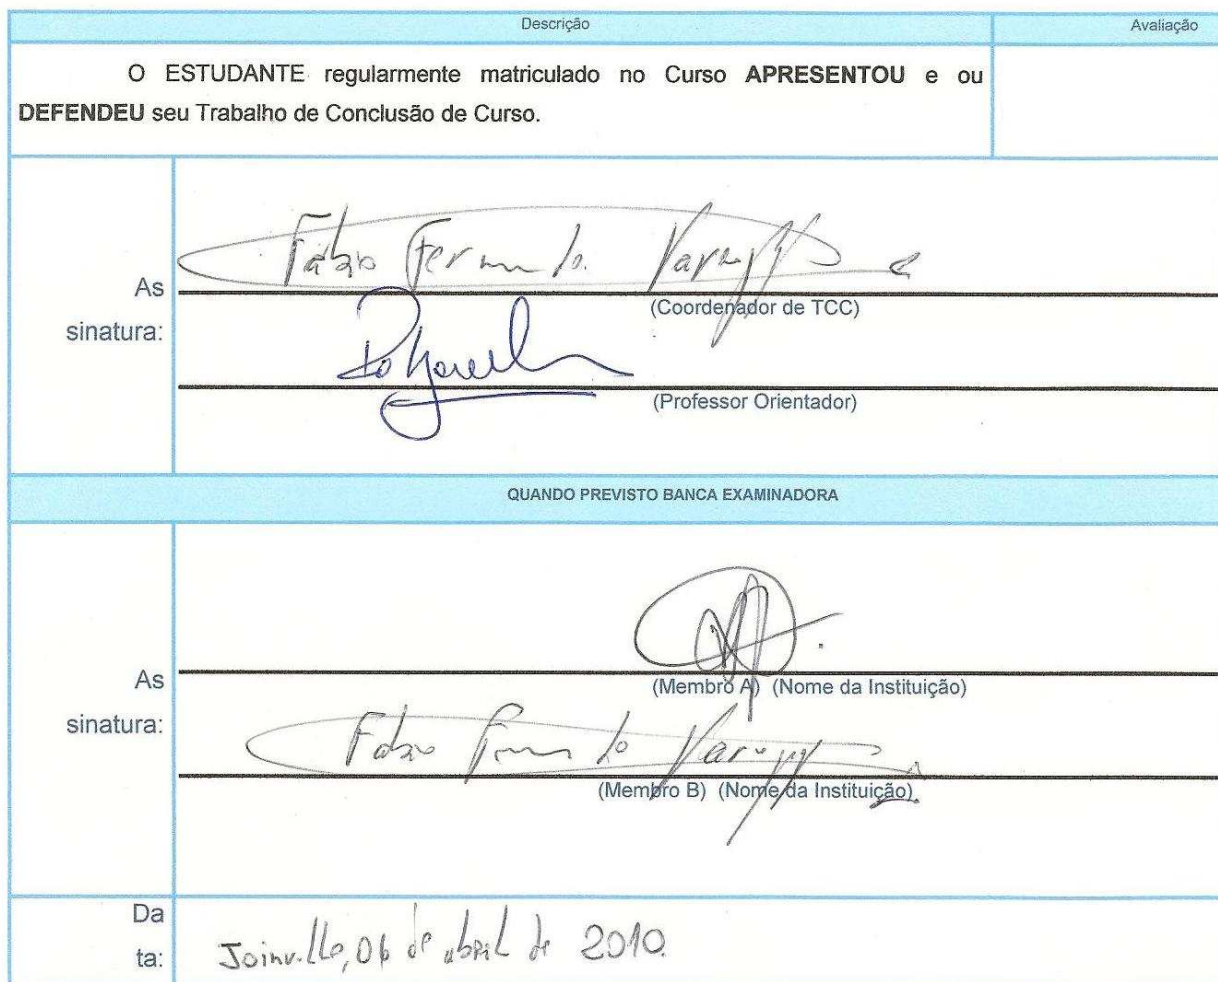 Descrição
Avaliação
O ESTUDANTE regularmente matriculado no Curso APRESENTOU e ou
DEFENDEU seu Trabalho de Conclusão de Curso.
Fabio Fernando
As
(Coordenador de TCC)
sinatura:
(Professor Orientador)
QUANDO PREVISTO BANCA EXAMINADORA
As
(Membro A) (Nome da Instituição)
sinatura:
Fabio
(Membro B) (Nome da Instituição)
Da
ta:
Joinville, 06 de abril de 2010.